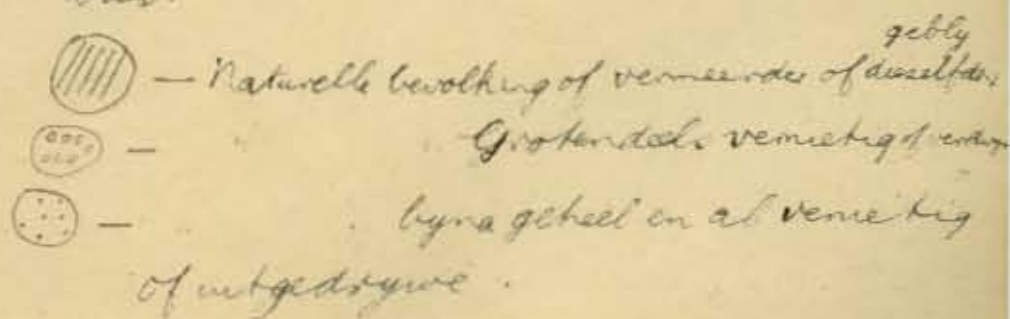 gebly
— Naturelle bevolking of vermeerder of dieselfde
— " " Grotendeels vernietig of
— " " byna geheel en al vernietig
of uitgedrywe.